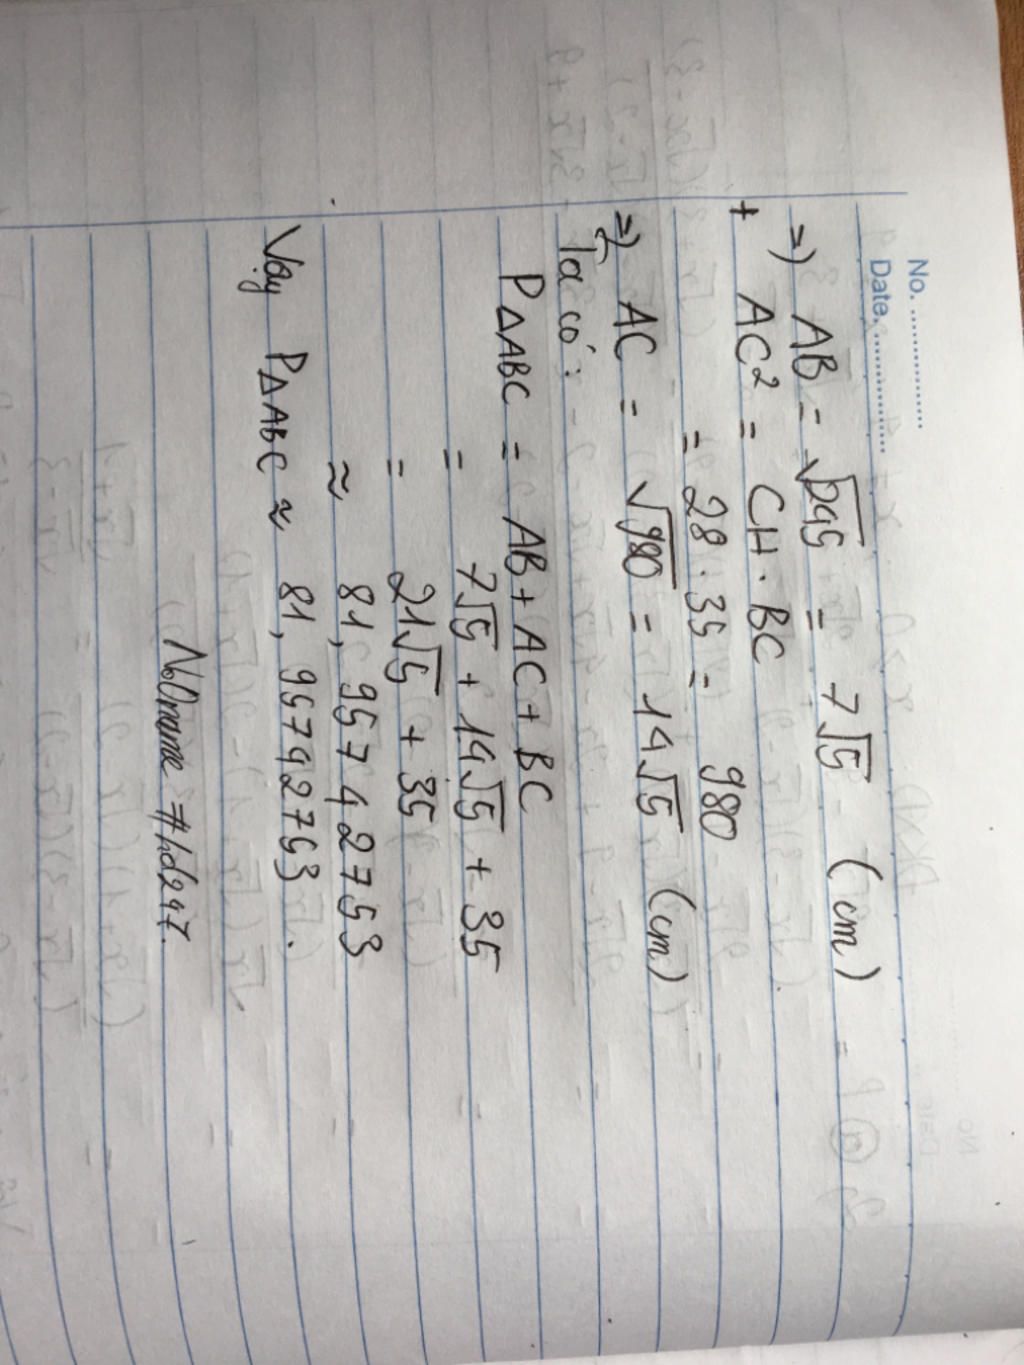 No. ................
Date. ................
=) AB = √245 = 7√5 (cm)
+ AC² = CH . BC
= 28 . 35 = 980
=) AC = √980 = 14√5 (cm)
Ta có :
P△ABC = AB + AC + BC
= 7√5 + 14√5 + 35
= 21√5 + 35
≈ 81, 95742753
Vậy P△ABC ≈ 81, 95742753.
NoOname #hd247.